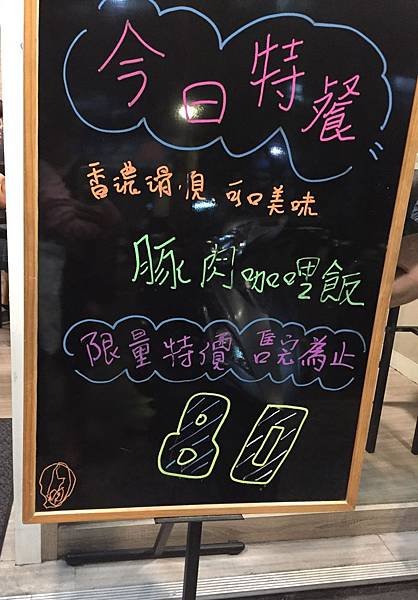 今日特餐
香濃滑順 可口美味
豚肉咖哩飯
限量特價 售完為止
80